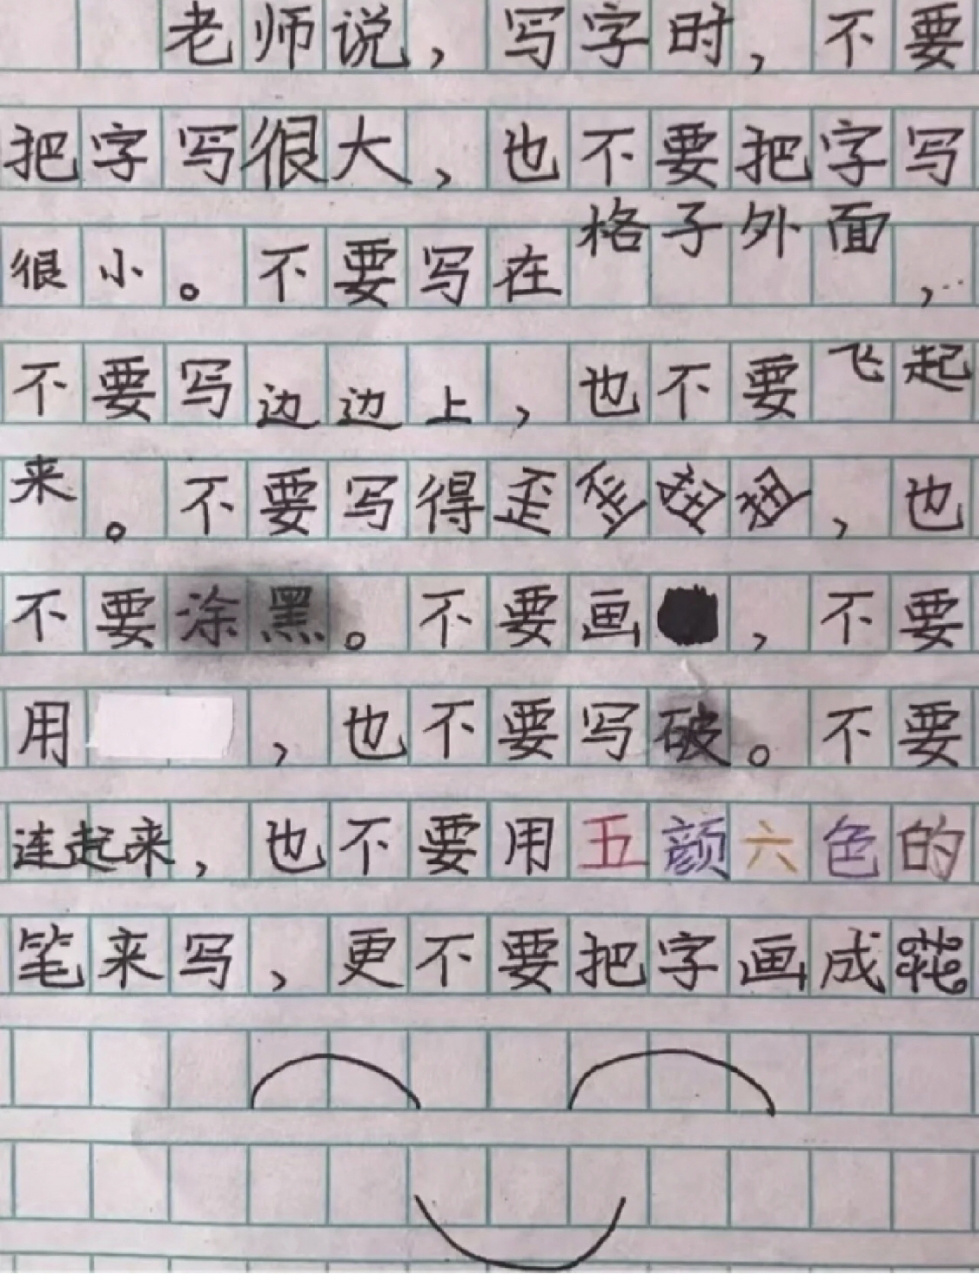 老师说，写字时，不要
把字写很大，也不要把字写
很小。不要写在格子外面，
不要写边边上，也不要飞起
来。不要写得歪歪扭扭，也
不要涂黑。不要画，不要
用，也不要写破。不要
连起来，也不要用五颜六色的
笔来写，更不要把字画成花